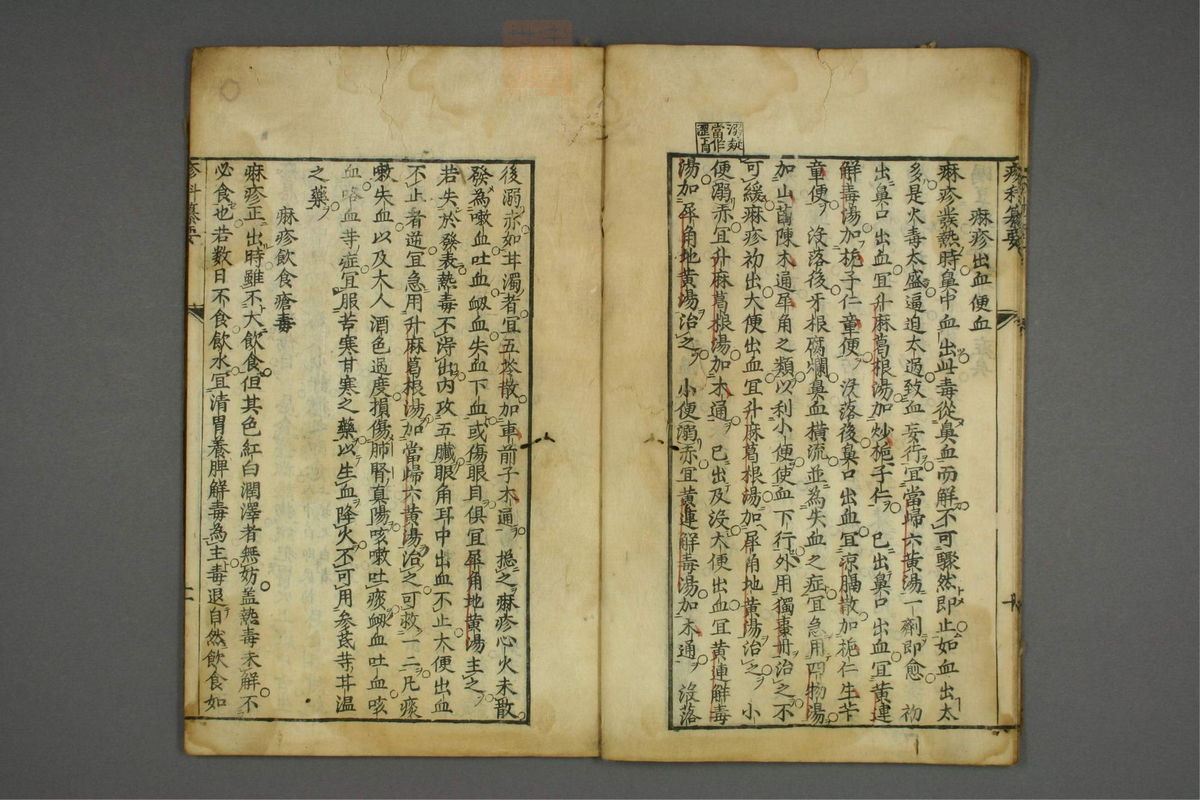 疹科纂要
麻疹出血便血
麻疹發熱時皇中血出此毒從鼻血而解不可驟然即止如血出太
多是火毒太盛逼迫太過致血妄行宜當歸六黃湯一劑即愈 初
出鼻口出血宜升麻葛根湯加炒梔子仁 已出鼻口出血宜黃連
解毒湯加梔子仁童便 沒落後鼻口出血宜涼膈散加梔仁生芐
童便 沒落後牙根腐爛鼻血橫流並為失血之症宜急用四物湯
加山茵陳木通犀角之類以利小便使血下行外用獨棗丹治之不
可緩麻疹初出大便出血宜升麻葛根湯加犀角地黃湯治之 小
便溺赤宜升麻葛根湯加木通 已出及沒大便出血宜黃連解毒
湯加犀角地黃湯治之 小便溺赤宜黃連解毒湯加木通 沒落
溺疑
當作
澀下肖
十
後溺赤如甘濁者宜五苓散加車前子木通 揔之麻疹心火未散
發為嗽血吐血衂血失血下血或傷眼目俱宜犀角地黃湯主之
若失於發表熱毒不得出內攻五臟眼角耳中出血不止大便出血
不止者逆宜急用升麻葛根湯加當歸六黃湯治之可救一二凡痰
嗽失血以及大人酒色過度損傷肺腎真陽咳嗽吐痰衂血吐血咳
血咯血等症宜服苦寒甘寒之藥以生血降火不可用參芪等甘温
之藥
麻疹飲食瘡毒
麻疹正出時雖不大飲食但其色紅白潤澤者無妨盖熱毒未解不
必食也若數日不食飲水宜清胃養脾解毒為主毒退自然飲食如
疹科纂要